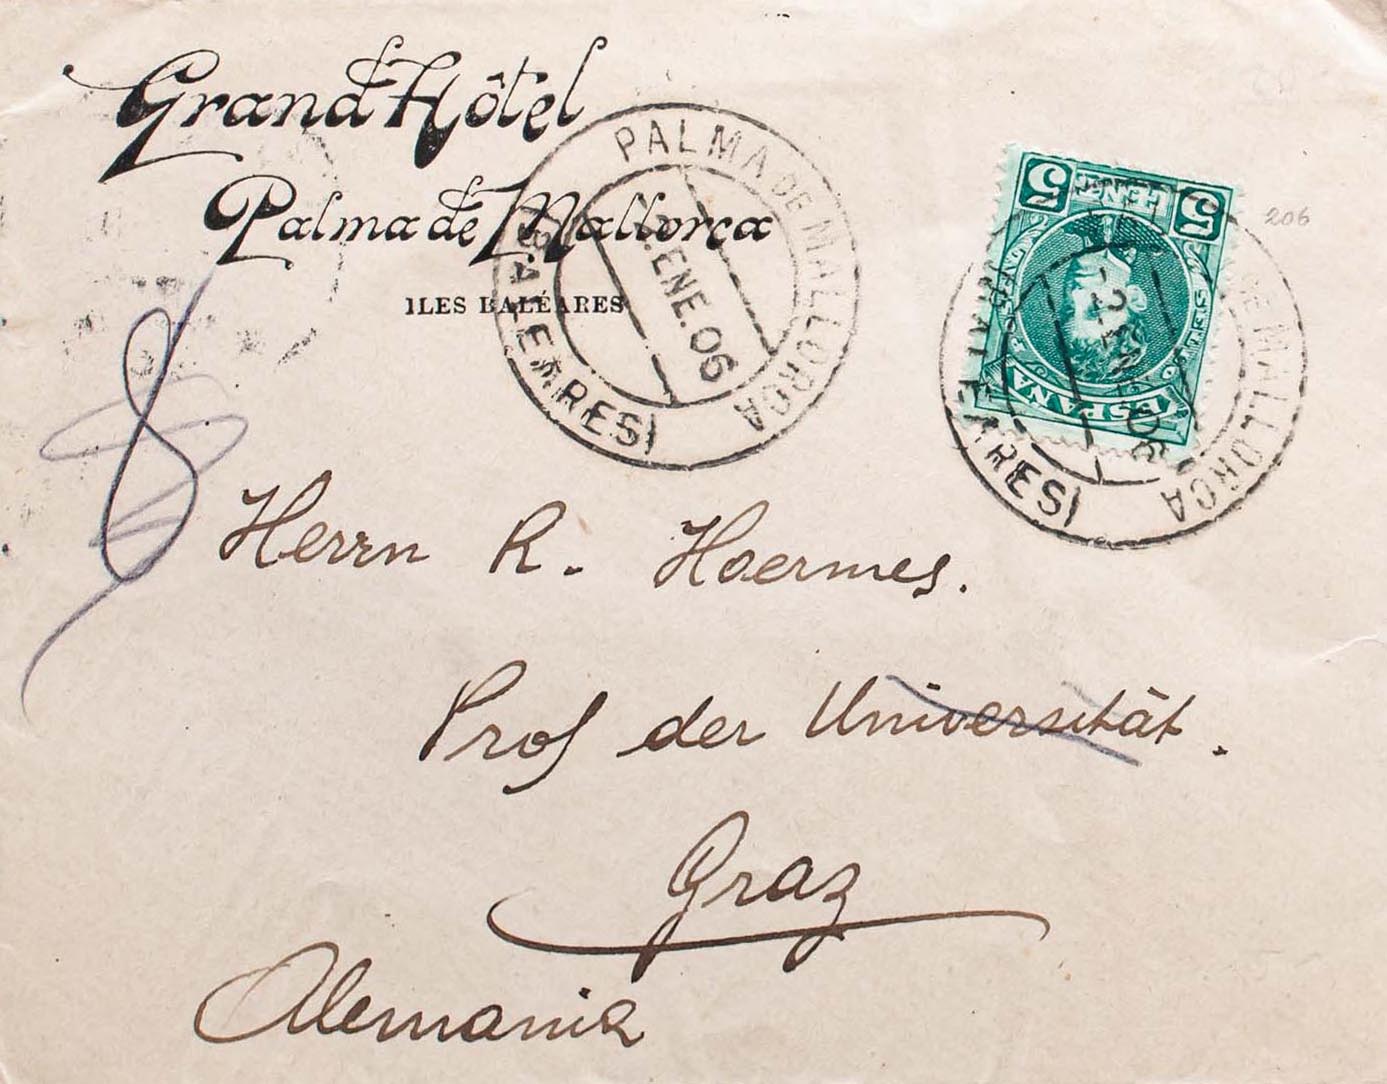 Grand Hôtel
Palma de Mallorca
ILES BALÉARES
PALMA DE MALLORCA
2.ENE.06
(BALEARES)
5 5
ESPAÑA
DE MALLORCA
-2 ENE 06
(BALEARES)
206
Herrn R. Hoermes.
Prof der Universität.
Graz
Alemania